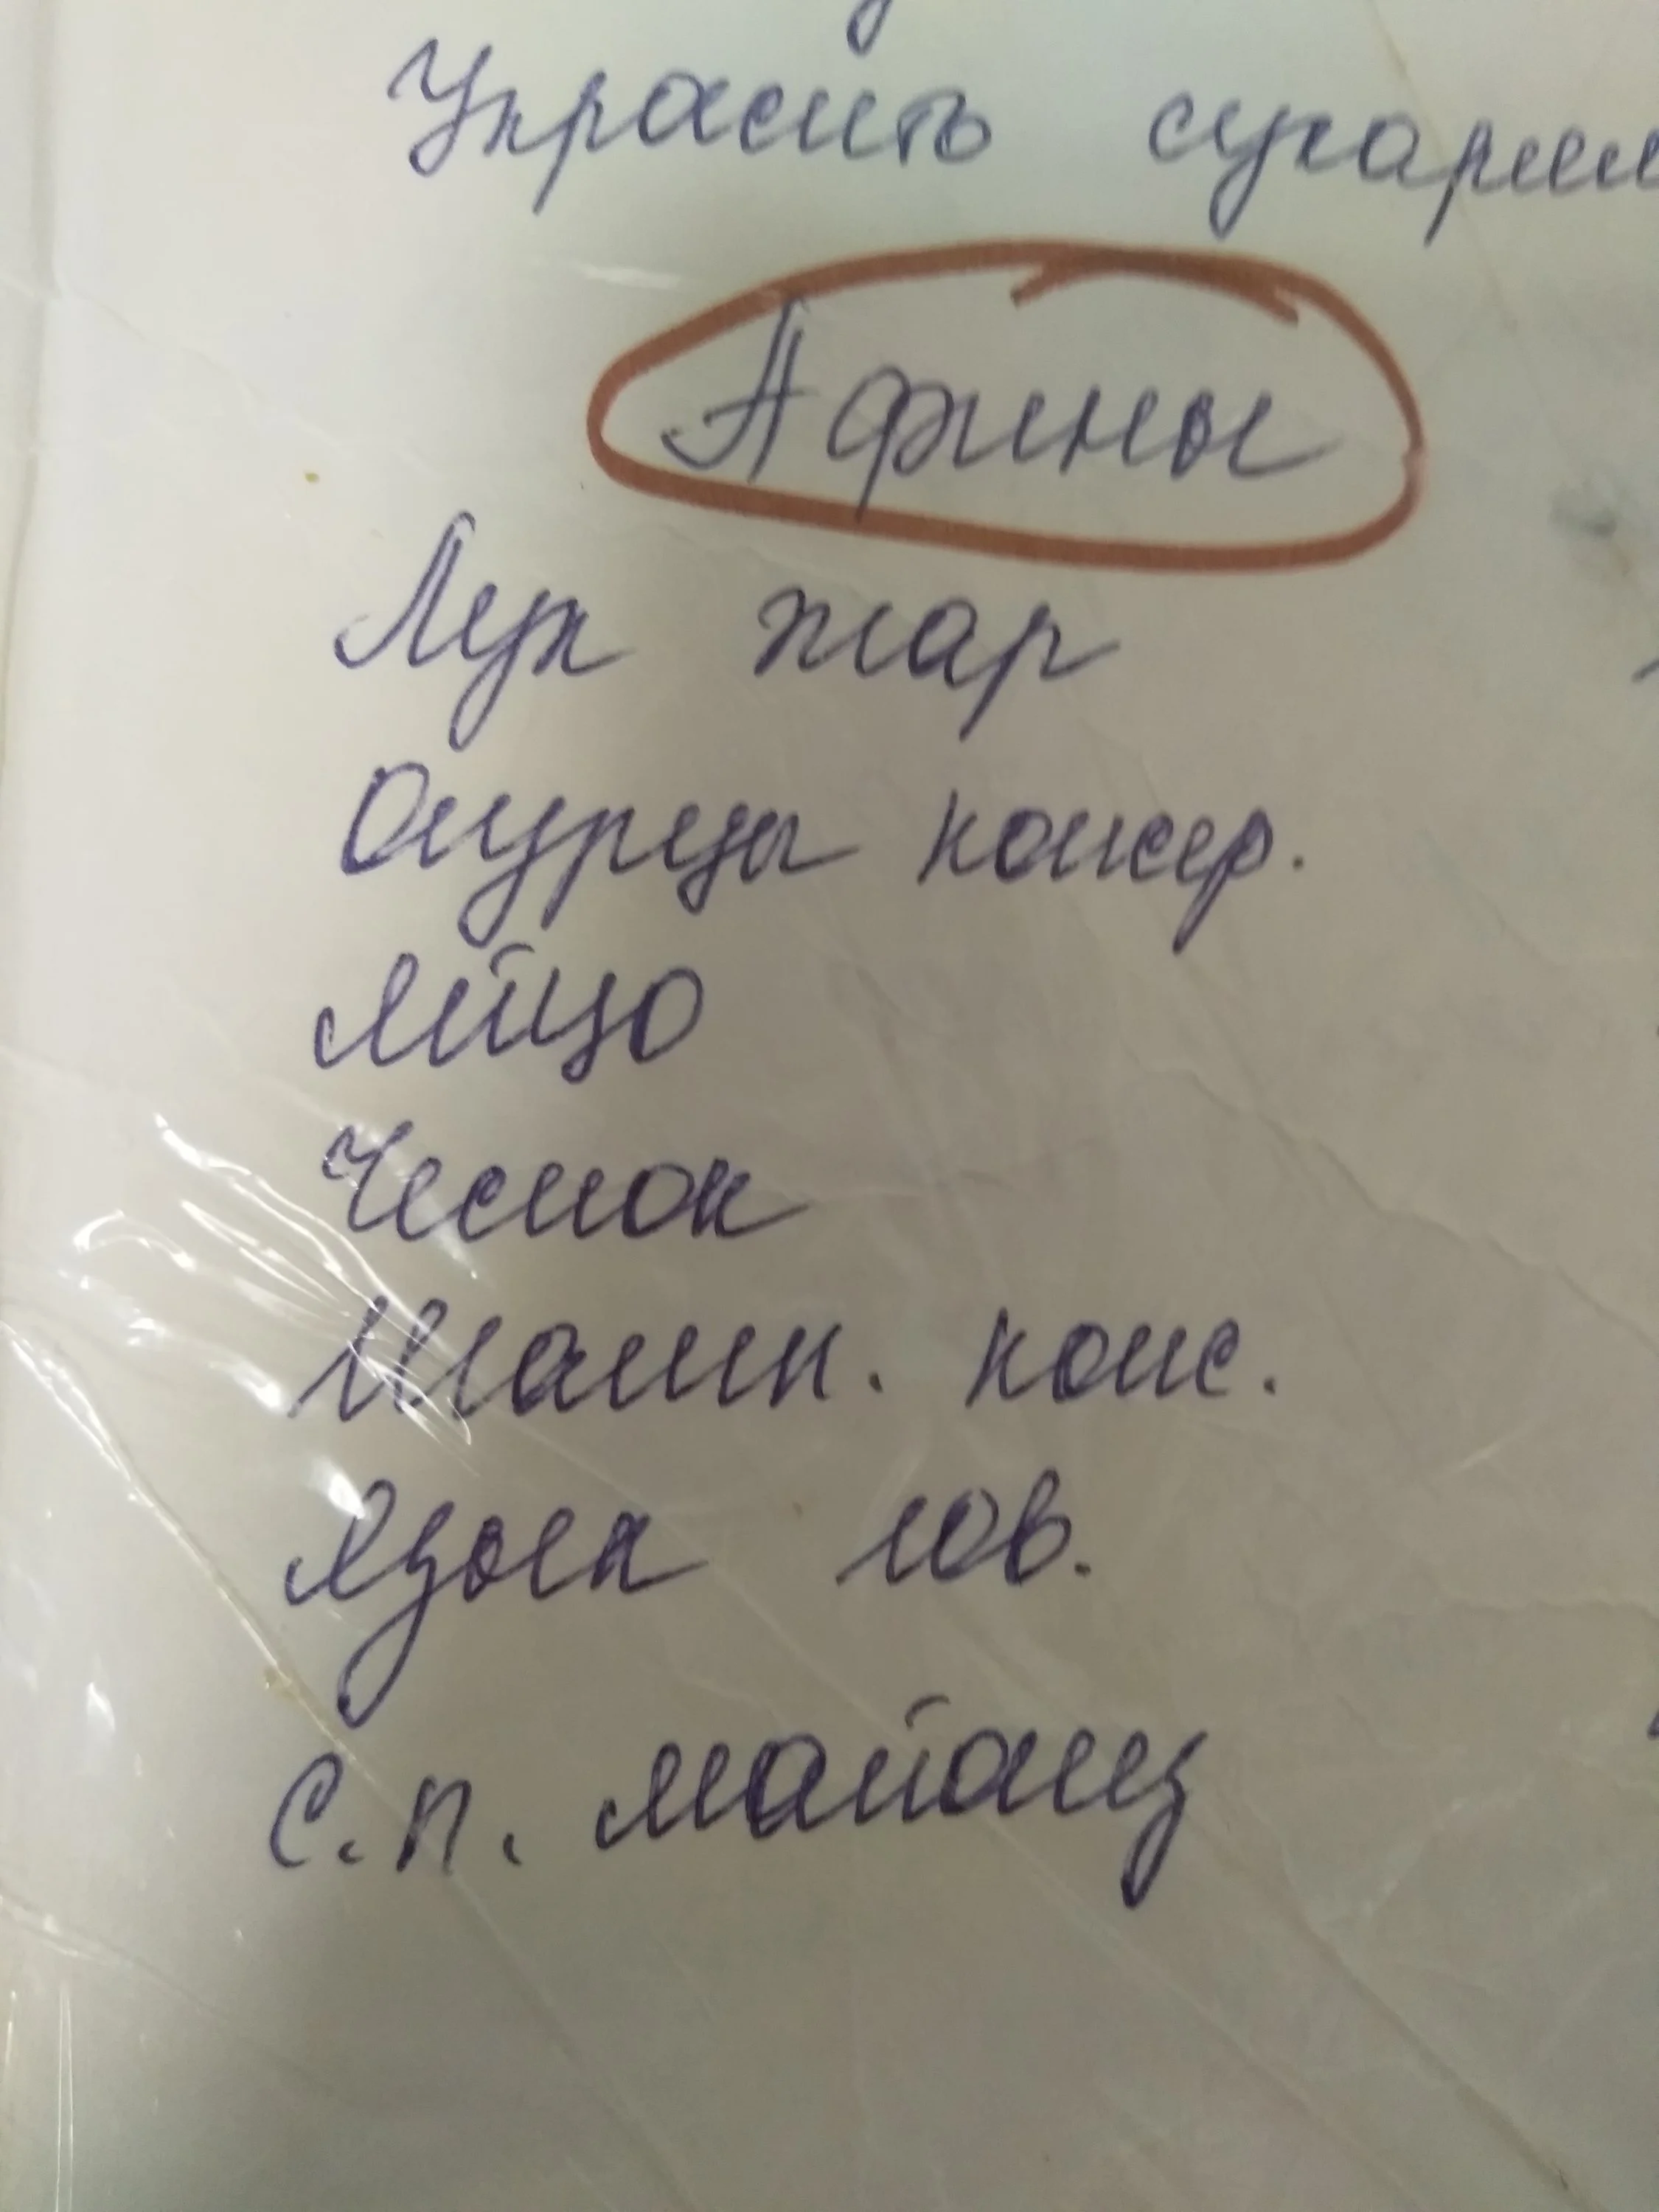 Украсить сухарим
Афины
Лук жар
Огурцы консер.
Яйцо
Чеснок
Шамп. конс.
Язык гов.
С.п. майонез